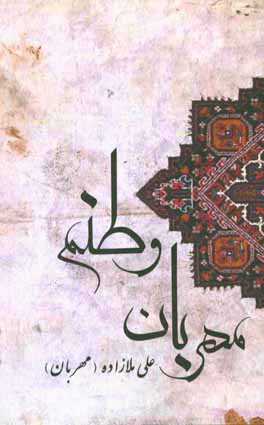 مهربان وطنیم
علی ملازاده (مهربان)